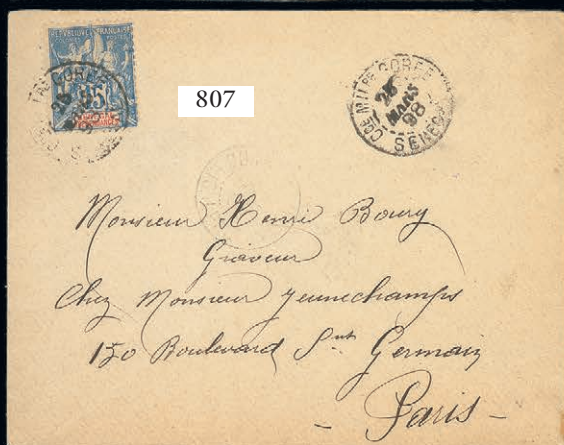 RÉPUBLIQUE FRANÇAISE
15
807
CCE MILRE GORÉE
25
MARS
98
Monsieur Henri Boury
Graveur
Chez Monsieur Jeunechamps
130 Boulevard St Germain
- Paris -